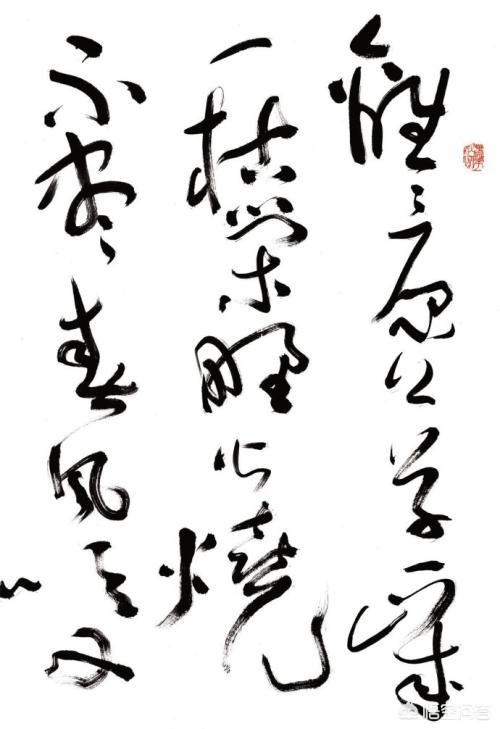 離〻原上草一歲
一枯榮野火燒
不盡春風吹又
悟空问答